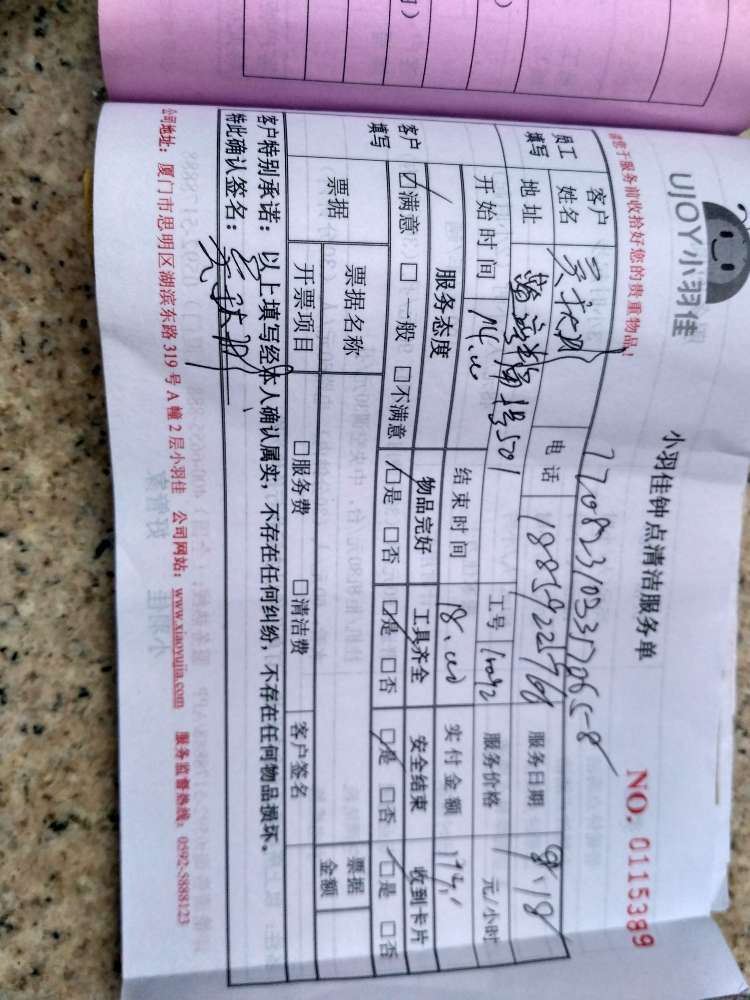 UJOY小羽佳
小羽佳钟点清洁服务单
NO. 0115389
请您于服务前收拾好您的贵重物品!
员工填写
客户姓名
电话
服务日期 8.18
地址
501
工号
服务价格
元/小时
开始时间 14.00
结束时间 18.00
实付金额
客户填写
服务态度
物品完好
工具齐全
安全结束
收到卡片
☑满意 □一般 □不满意
☑是 □否
☑是 □否
☑是 □否
☑是 □否
票据
票据名称
票据金额
开票项目
□服务费
□清洁费
客户签名
客户特别承诺:以上填写经本人确认属实,不存在任何纠纷,不存在任何物品损坏。
特此确认签名:
公司地址:厦门市思明区湖滨东路319号A幢2层小羽佳 公司网站:www.xiaoyujia.com 服务监督热线:0592-5888123